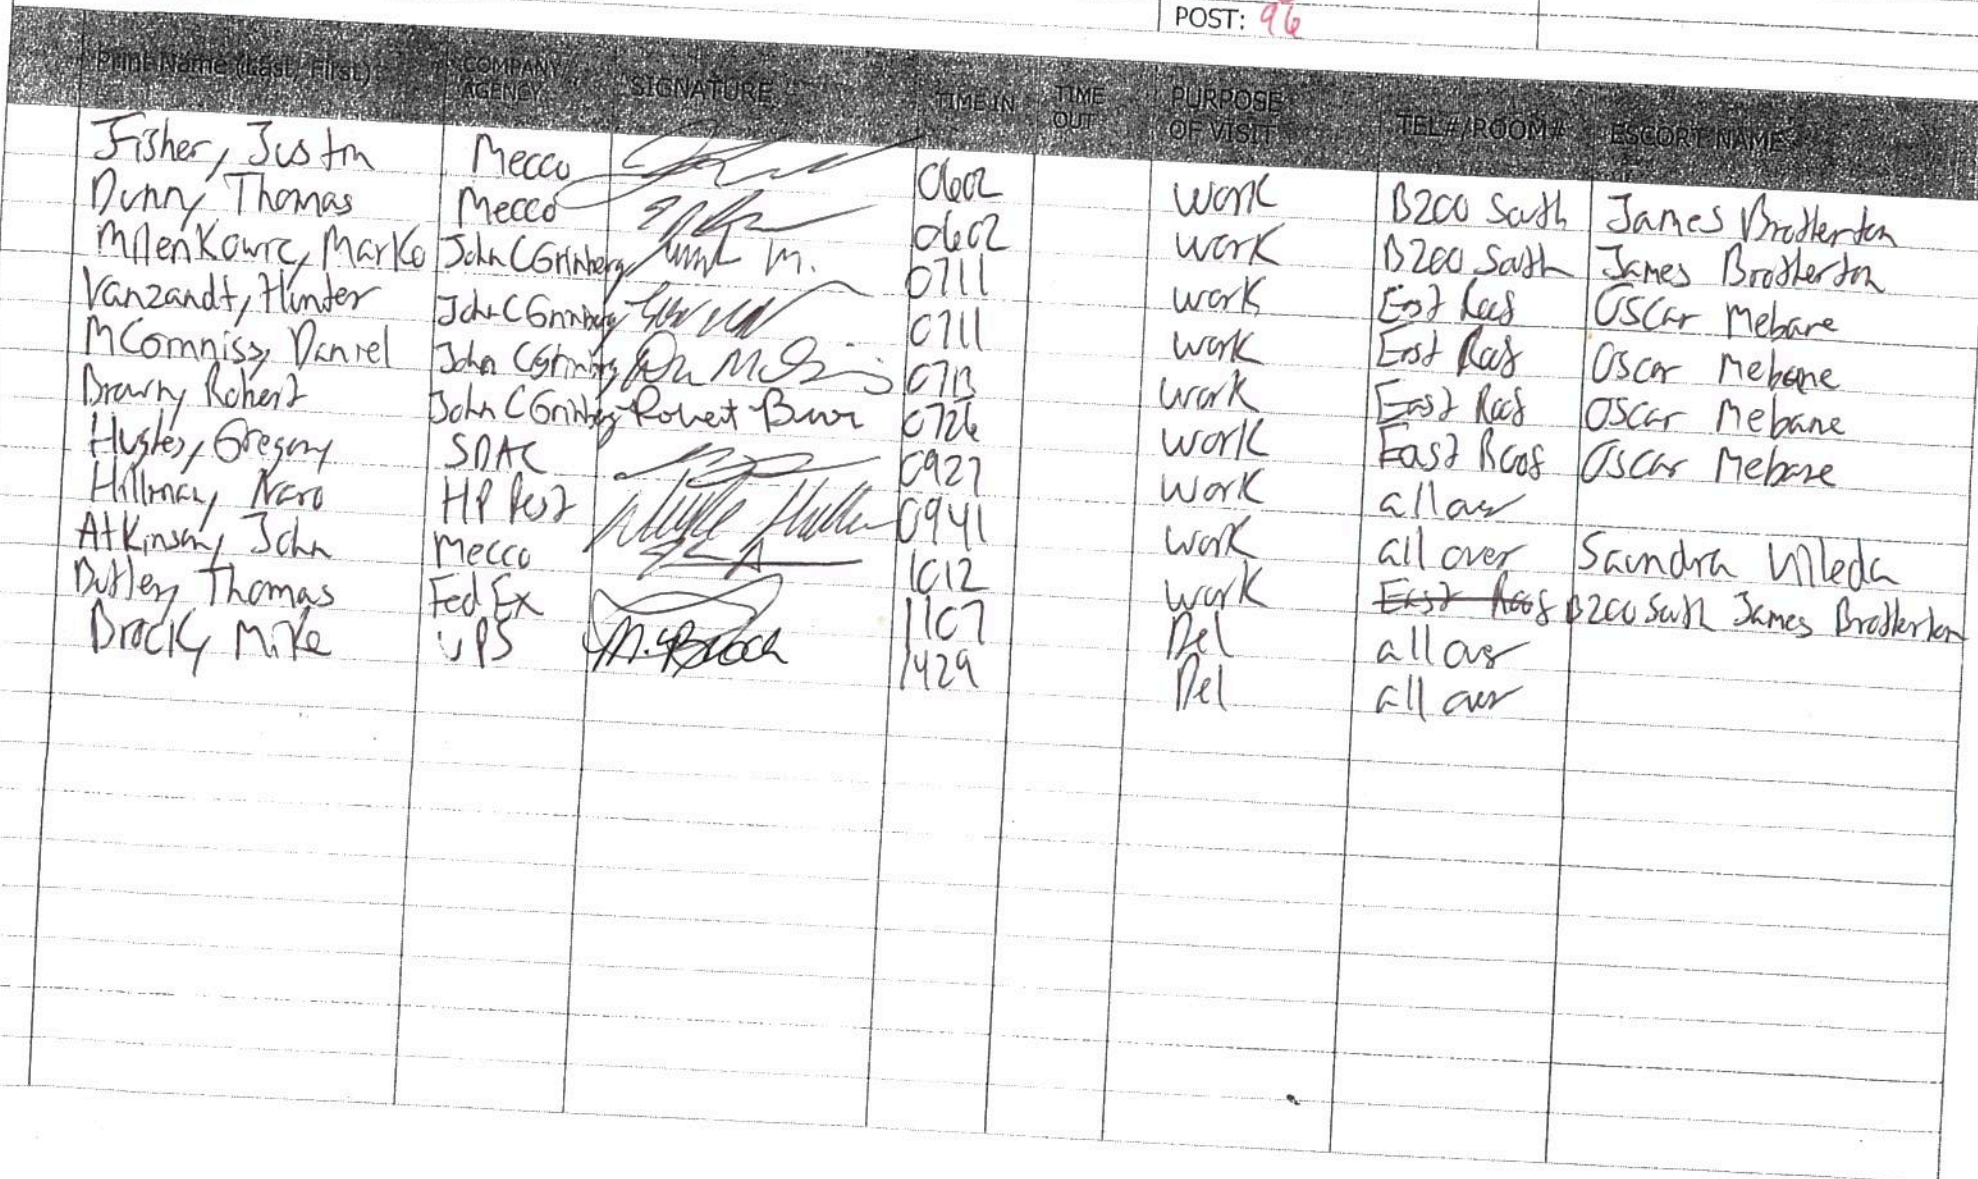 POST: 96
Print Name (Last, First) COMPANY/AGENCY SIGNATURE TIME IN TIME OUT PURPOSE OF VISIT TEL#/ROOM# ESCORT NAME
Fisher, Justin Mecco 0602 work B200 South James Brotherton
Dunn, Thomas Mecco 0602 work B200 South James Brotherton
Marko John C Grimberg M. 0711 work East Roof Oscar Mebane
Vanzandt, Hunter John C Grimberg 0711 work East Roof Oscar Mebane
Daniel John C Grimberg 0713 work East Roof Oscar Mebane
Brown, Robert John C Grimberg Robert 0726 work East Roof Oscar Mebane
Hughes, Gregory 0927 work all over
HP Pest 0941 work all over Saundra
Atkinson, John Mecco 1012 work East Roof B200 South James Brotherton
Butler, Thomas Fed Ex 1107 Del all over
Brock, Mike UPS M. Brock 1429 Del all over